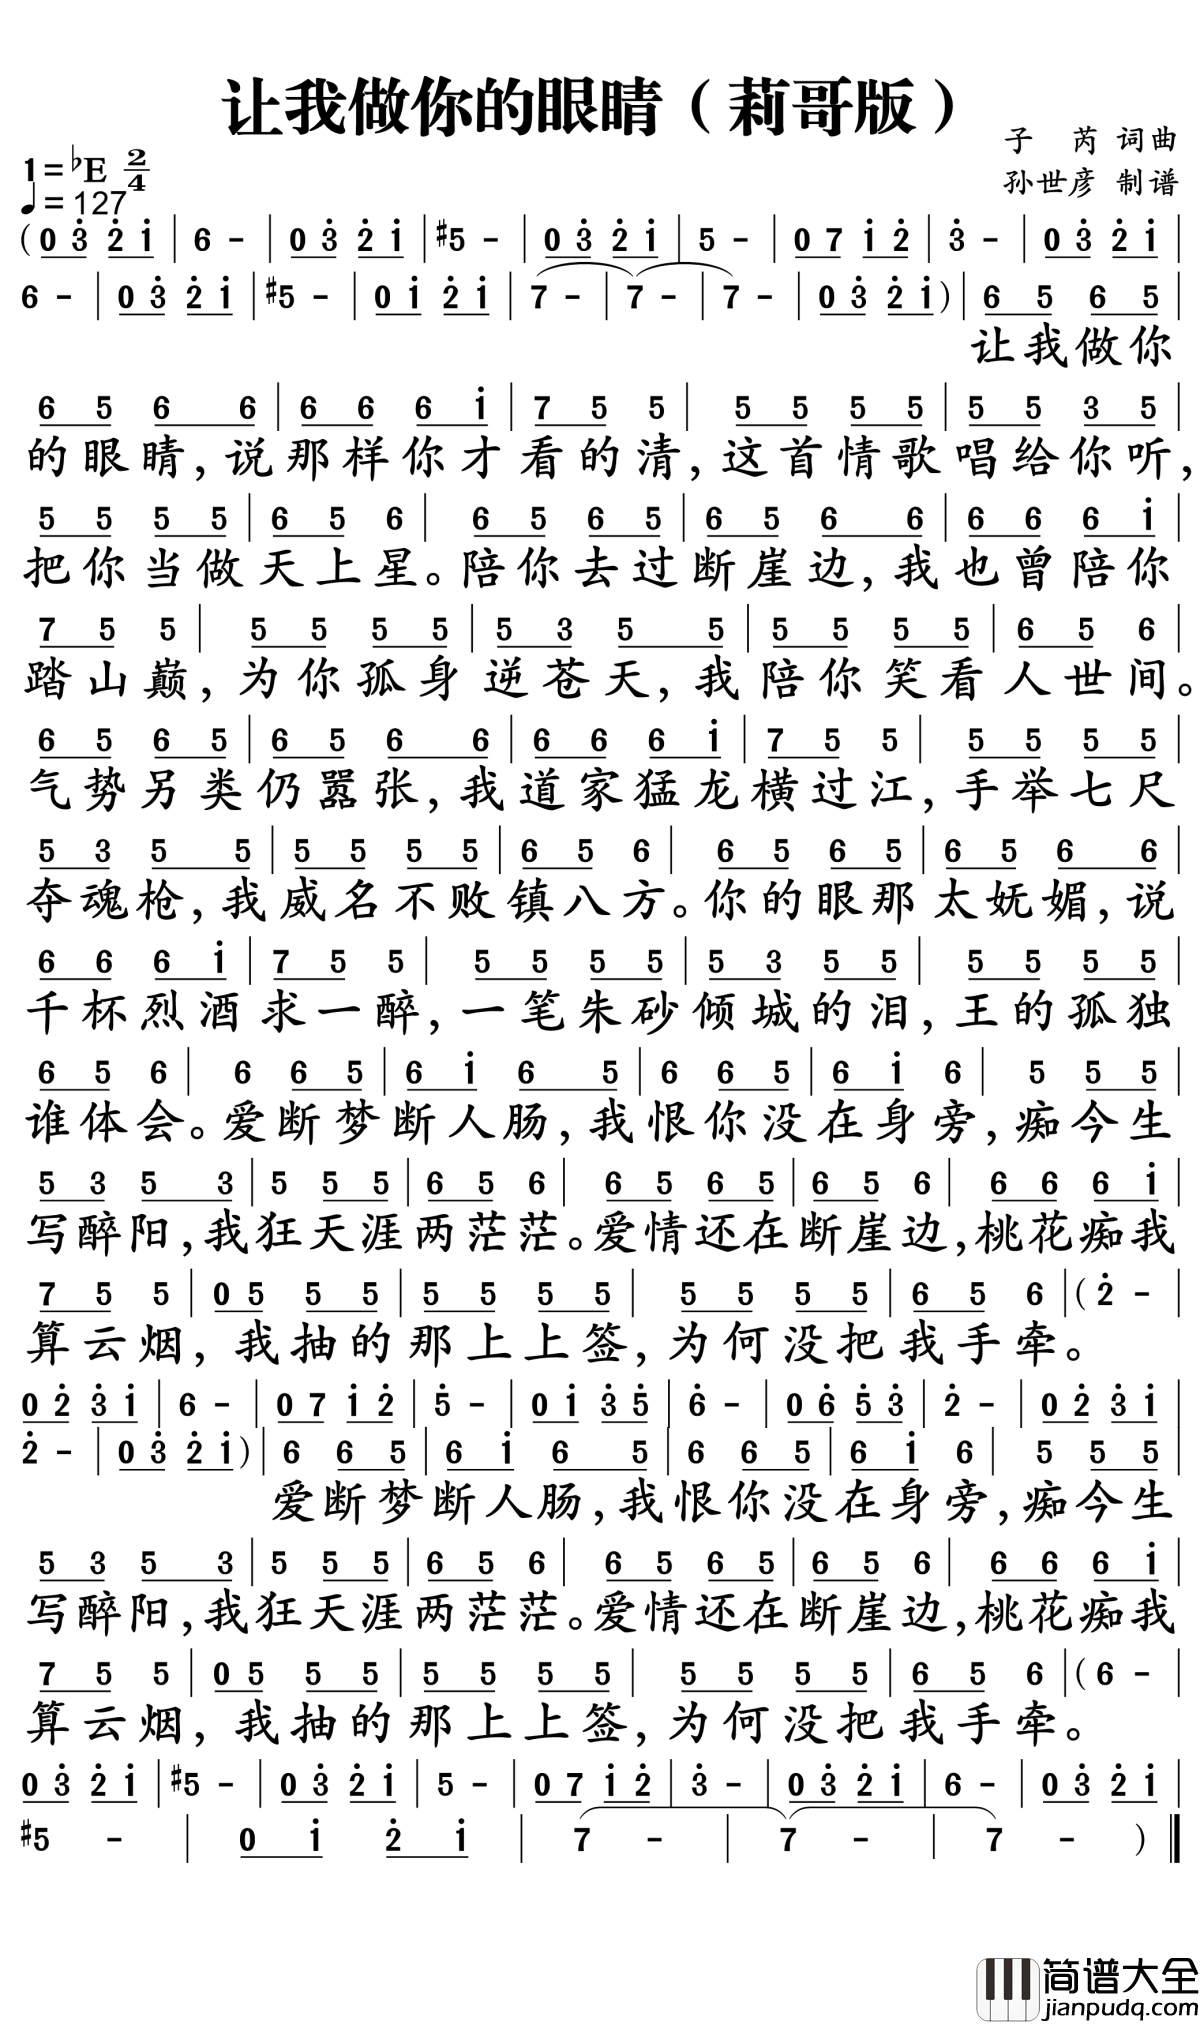 让我做你的眼睛（莉哥版）
子 芮 词曲
1=♭E 2/4
孙世彦 制谱
♩=127
( 0 3̇ 2̇ 1̇ | 6 - | 0 3̇ 2̇ 1̇ | #5 - | 0 3̇ 2̇ 1̇ | 5 - | 0 7 1̇ 2̇ | 3̇ - | 0 3̇ 2̇ 1̇ |
6 - | 0 3̇ 2̇ 1̇ | #5 - | 0 1̇ 2̇ 1̇ | 7 - | 7 - | 7 - | 0 3̇ 2̇ 1̇ ) | 6 5 6 5 |
让我做你
6 5 6 6 | 6 6 6 1̇ | 7 5 5 | 5 5 5 5 | 5 5 3 5 |
的眼睛,说那样你才看的清,这首情歌唱给你听,
5 5 5 5 | 6 5 6 | 6 5 6 5 | 6 5 6 6 | 6 6 6 1̇ |
把你当做天上星。陪你去过断崖边,我也曾陪你
7 5 5 | 5 5 5 5 | 5 3 5 5 | 5 5 5 5 | 6 5 6 |
踏山巅,为你孤身逆苍天,我陪你笑看人世间。
6 5 6 5 | 6 5 6 6 | 6 6 6 1̇ | 7 5 5 | 5 5 5 5 |
气势另类仍嚣张,我道家猛龙横过江,手举七尺
5 3 5 5 | 5 5 5 5 | 6 5 6 | 6 5 6 5 | 6 5 6 6 |
夺魂枪,我威名不败镇八方。你的眼那太妩媚,说
6 6 6 1̇ | 7 5 5 | 5 5 5 5 | 5 3 5 5 | 5 5 5 5 |
千杯烈酒求一醉,一笔朱砂倾城的泪,王的孤独
6 5 6 | 6 6 5 | 6 1̇ 6 5 | 6 6 5 | 6 1̇ 6 | 5 5 5 |
谁体会。爱断梦断人肠,我恨你没在身旁,痴今生
5 3 5 3 | 5 5 5 | 6 5 6 | 6 5 6 5 | 6 5 6 | 6 6 6 1̇ |
写醉阳,我狂天涯两茫茫。爱情还在断崖边,桃花痴我
7 5 5 | 0 5 5 5 | 5 5 5 5 | 5 5 5 5 | 6 5 6 | ( 2̇ - |
算云烟,我抽的那上上签,为何没把我手牵。
0 2̇ 3̇ 1̇ | 6 - | 0 7 1̇ 2̇ | 5̇ - | 0 1̇ 3̇ 5̇ | 6̇ - | 0 6̇ 5̇ 3̇ | 2̇ - | 0 2̇ 3̇ 1̇ |
2̇ - | 0 3̇ 2̇ 1̇ ) | 6 6 5 | 6 1̇ 6 5 | 6 6 5 | 6 1̇ 6 | 5 5 5 |
爱断梦断人肠,我恨你没在身旁,痴今生
5 3 5 3 | 5 5 5 | 6 5 6 | 6 5 6 5 | 6 5 6 | 6 6 6 1̇ |
写醉阳,我狂天涯两茫茫。爱情还在断崖边,桃花痴我
7 5 5 | 0 5 5 5 | 5 5 5 5 | 5 5 5 5 | 6 5 6 | ( 6 - |
算云烟,我抽的那上上签,为何没把我手牵。
0 3̇ 2̇ 1̇ | #5 - | 0 3̇ 2̇ 1̇ | 5 - | 0 7 1̇ 2̇ | 3̇ - | 0 3̇ 2̇ 1̇ | 6 - | 0 3̇ 2̇ 1̇ |
#5 - | 0 1̇ 2̇ 1̇ | 7 - | 7 - | 7 - ) ‖
简谱大全
jianpudq.com